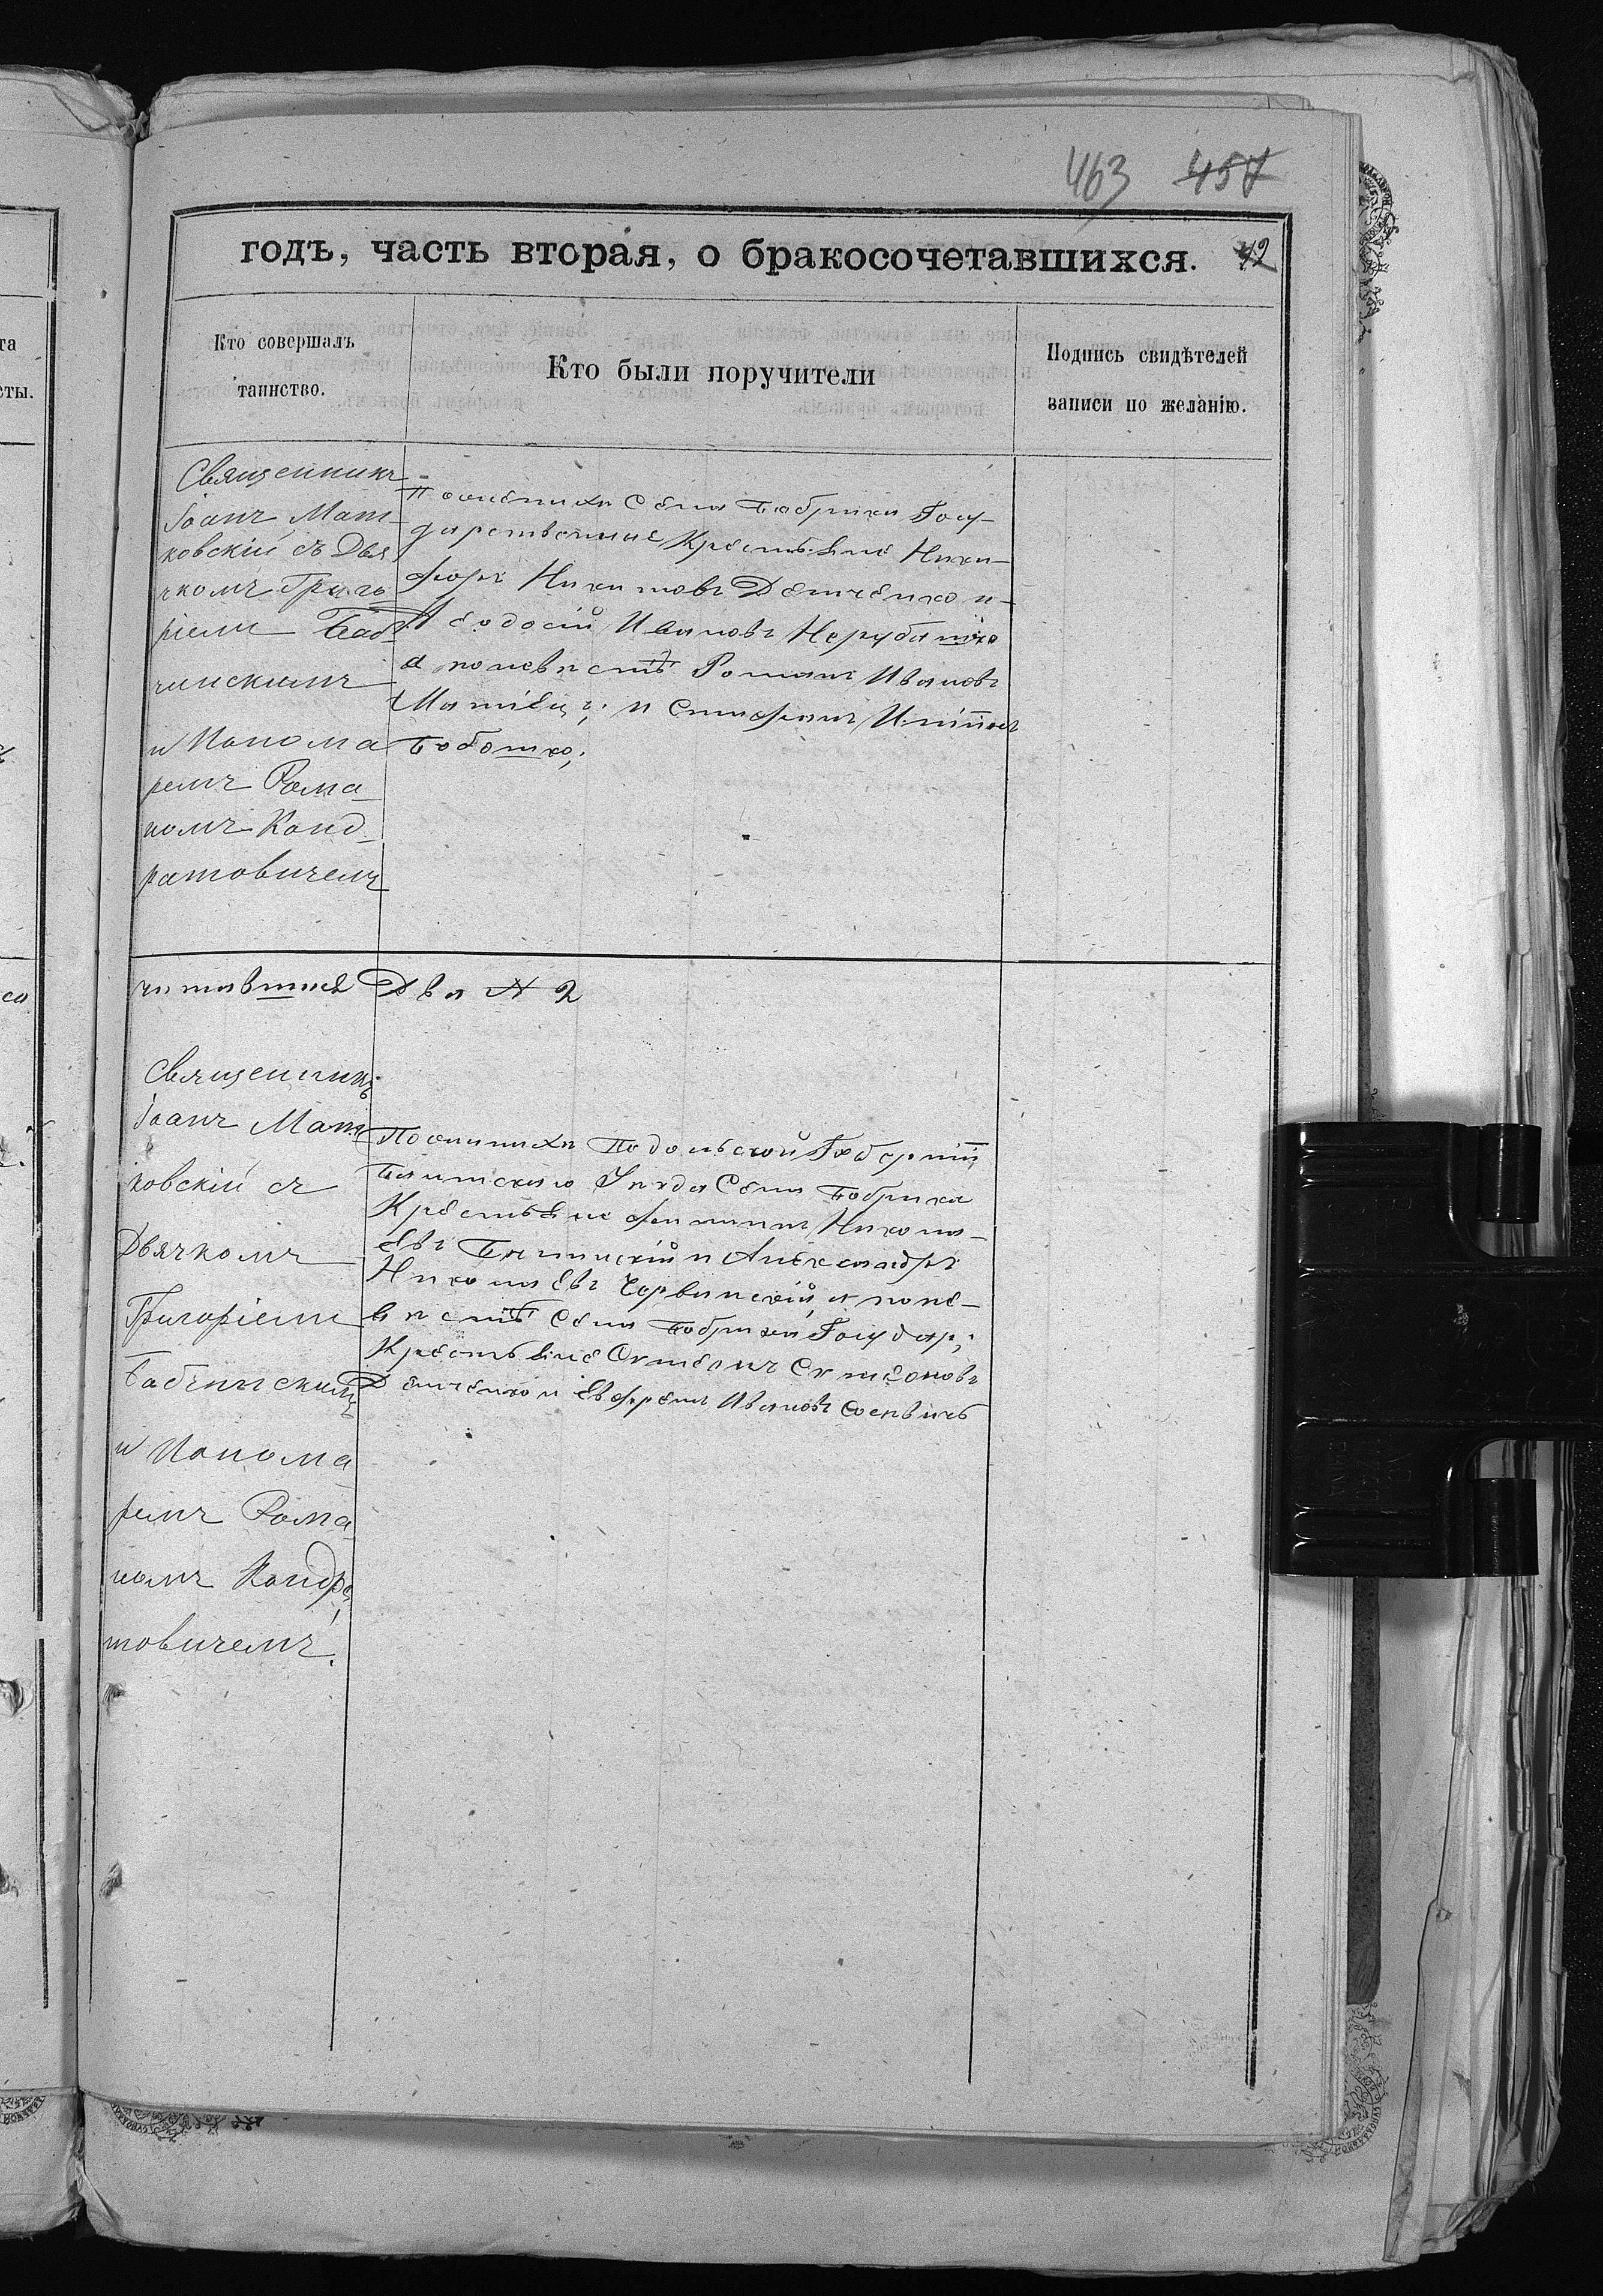 463 457
годъ, часть вторая, о бракосочетавшихся. 42
Кто совершалъ
таинство.
Кто были поручители
Подпись свидѣтелей
записи по желанію.
Священникъ
Іоанъ Мат-
ковскій съ Дья
чкомъ Григо
ріемъ Баб-
чинскимъ
и Понома
ремъ Рома
номъ Конд
ратовичемъ
По женихѣ Села Бобрика Госу-
дарственные Крестьяне Ники-
форъ Никитовъ Демченко и
Ѳеодосій Ивановъ Нерубайко
а поневѣстѣ Романъ Ивановъ
и Стефанъ
читавшися Два № 2
Священникъ
Іоанъ Мат
ковскій съ
Дьячкомъ
Григоріемъ
Бабчинскимъ
и Понома
ремъ Рома
номъ Кондра
товичемъ.
По женихѣ Подольской Губерніи
Балтскаго Уѣзда Села Бобрика
Крестьяне Филипъ Никола-
евъ и Александръ
Николаевъ Червинскій, а поне-
вѣстѣ Села Бобрика Государ;
Крестьяне Симеонъ Симеоновъ
Демченко и Евфремъ Ивановъ